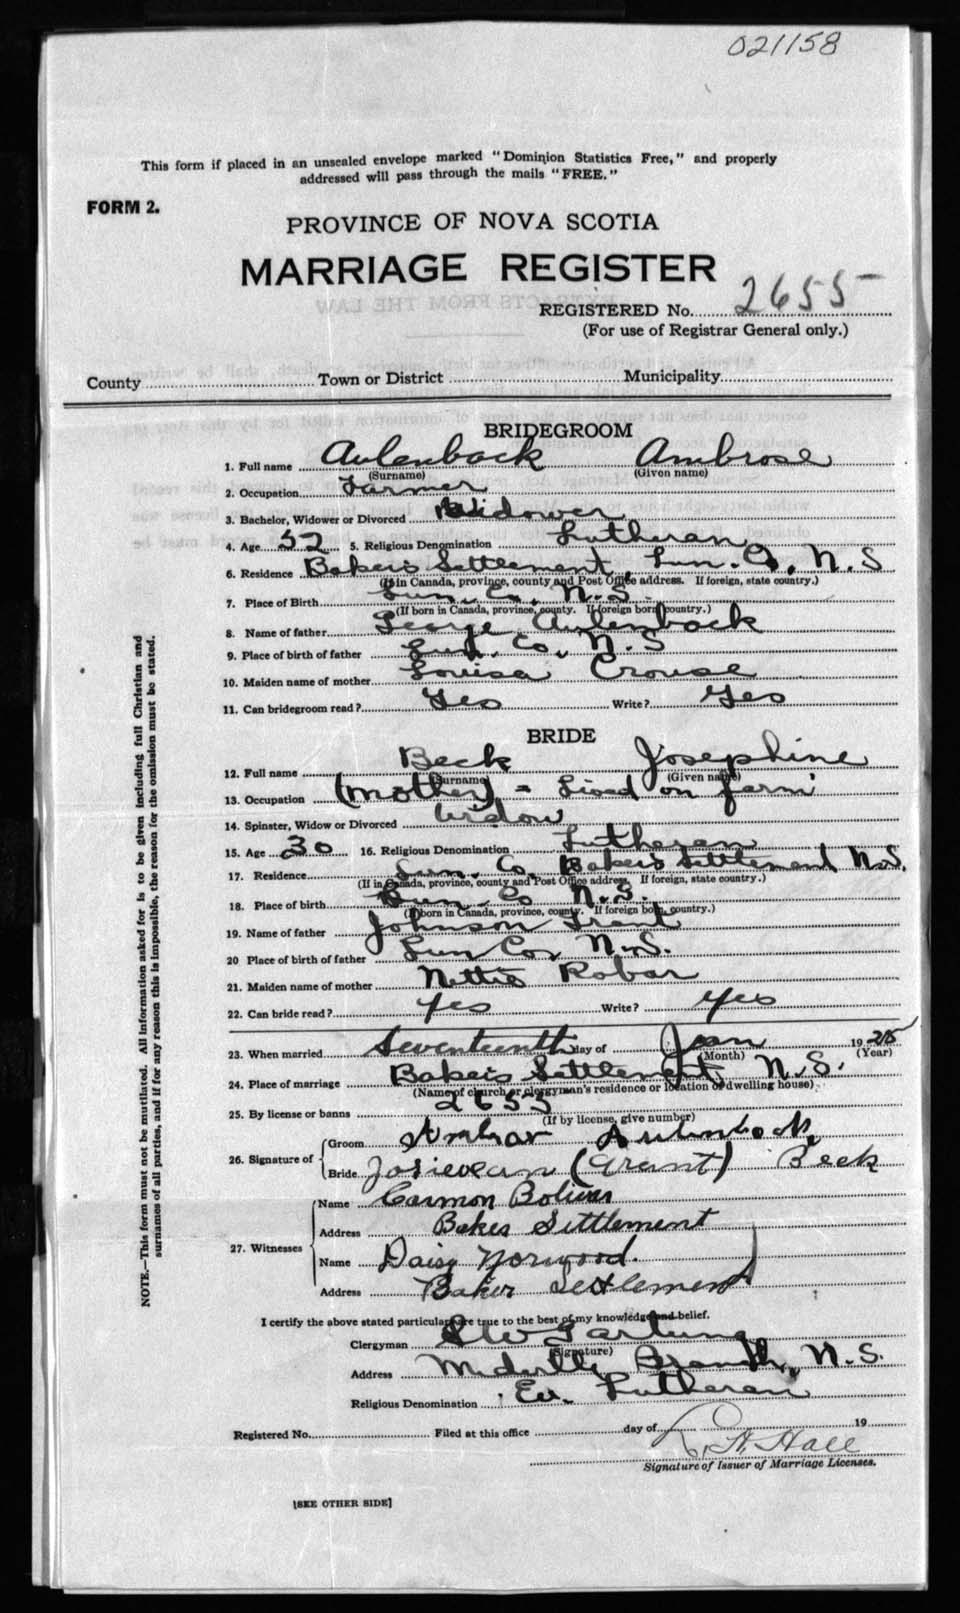 021158
This form if placed in an unsealed envelope marked "Dominion Statistics Free," and properly
addressed will pass through the mails "FREE."
FORM 2.
PROVINCE OF NOVA SCOTIA
MARRIAGE REGISTER
REGISTERED No. 2655
(For use of Registrar General only.)
County Town or District Municipality
BRIDEGROOM
1. Full name Aulenback Ambrose
(Surname) (Given name)
2. Occupation Farmer
3. Bachelor, Widower or Divorced Widower
4. Age 52 5. Religious Denomination Lutheran
6. Residence Bakers Settlement, Lun. Co, N.S
(If in Canada, province, county and Post Office address. If foreign, state country.)
7. Place of Birth Lun. Co, N.S.
(If born in Canada, province, county. If foreign born, country.)
8. Name of father George Aulenback
9. Place of birth of father Lun. Co, N.S
10. Maiden name of mother Louisa Crouse
11. Can bridegroom read? Yes Write? Yes
BRIDE
12. Full name Beck Josephine
(Surname) (Given name)
13. Occupation (mother) = Lived on farm
14. Spinster, Widow or Divorced Widow
15. Age 30 16. Religious Denomination Lutheran
17. Residence Lun. Co, Bakers Settlement N.S.
(If in Canada, province, county and Post Office address. If foreign, state country.)
18. Place of birth Lun. Co N.S.
(If born in Canada, province, county. If foreign born, country.)
19. Name of father Johnson Grant
20 Place of birth of father Lun Co, N.S.
21. Maiden name of mother Nettie Robar
22. Can bride read? yes Write? yes
23. When married Seventeenth day of Jan 1925
(Month) (Year)
24. Place of marriage Bakers Settlement, N.S.
(Name of church or clergyman's residence or location of dwelling house)
25. By license or banns 2653
(If by license, give number)
26. Signature of
Groom Aulenback
Bride (Grant) Beck
27. Witnesses
Name Carmon Boliver
Address Bakes Settlement
Name Daisy Norwood.
Address Baker Settlement
I certify the above stated particulars are true to the best of my knowledge and belief.
Clergyman
(Signature)
Address Branch, N.S.
Religious Denomination Ev. Lutheran
Registered No. Filed at this office day of 19
Hall
Signature of Issuer of Marriage Licenses.
[SEE OTHER SIDE]
NOTE.—This form must not be mutilated. All information asked for is to be given including full Christian and
surnames of all parties, and if for any reason this is impossible, the reason for the omission must be stated.